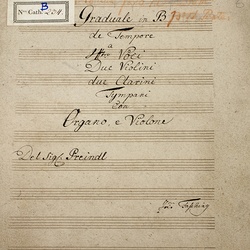 Graduale in B
No. Cath. B 234
de Tempore
a
4tro Voci
Due Violini
due Clarini
Tympani
con
Organo, e Violone
Del Sig. Preindl